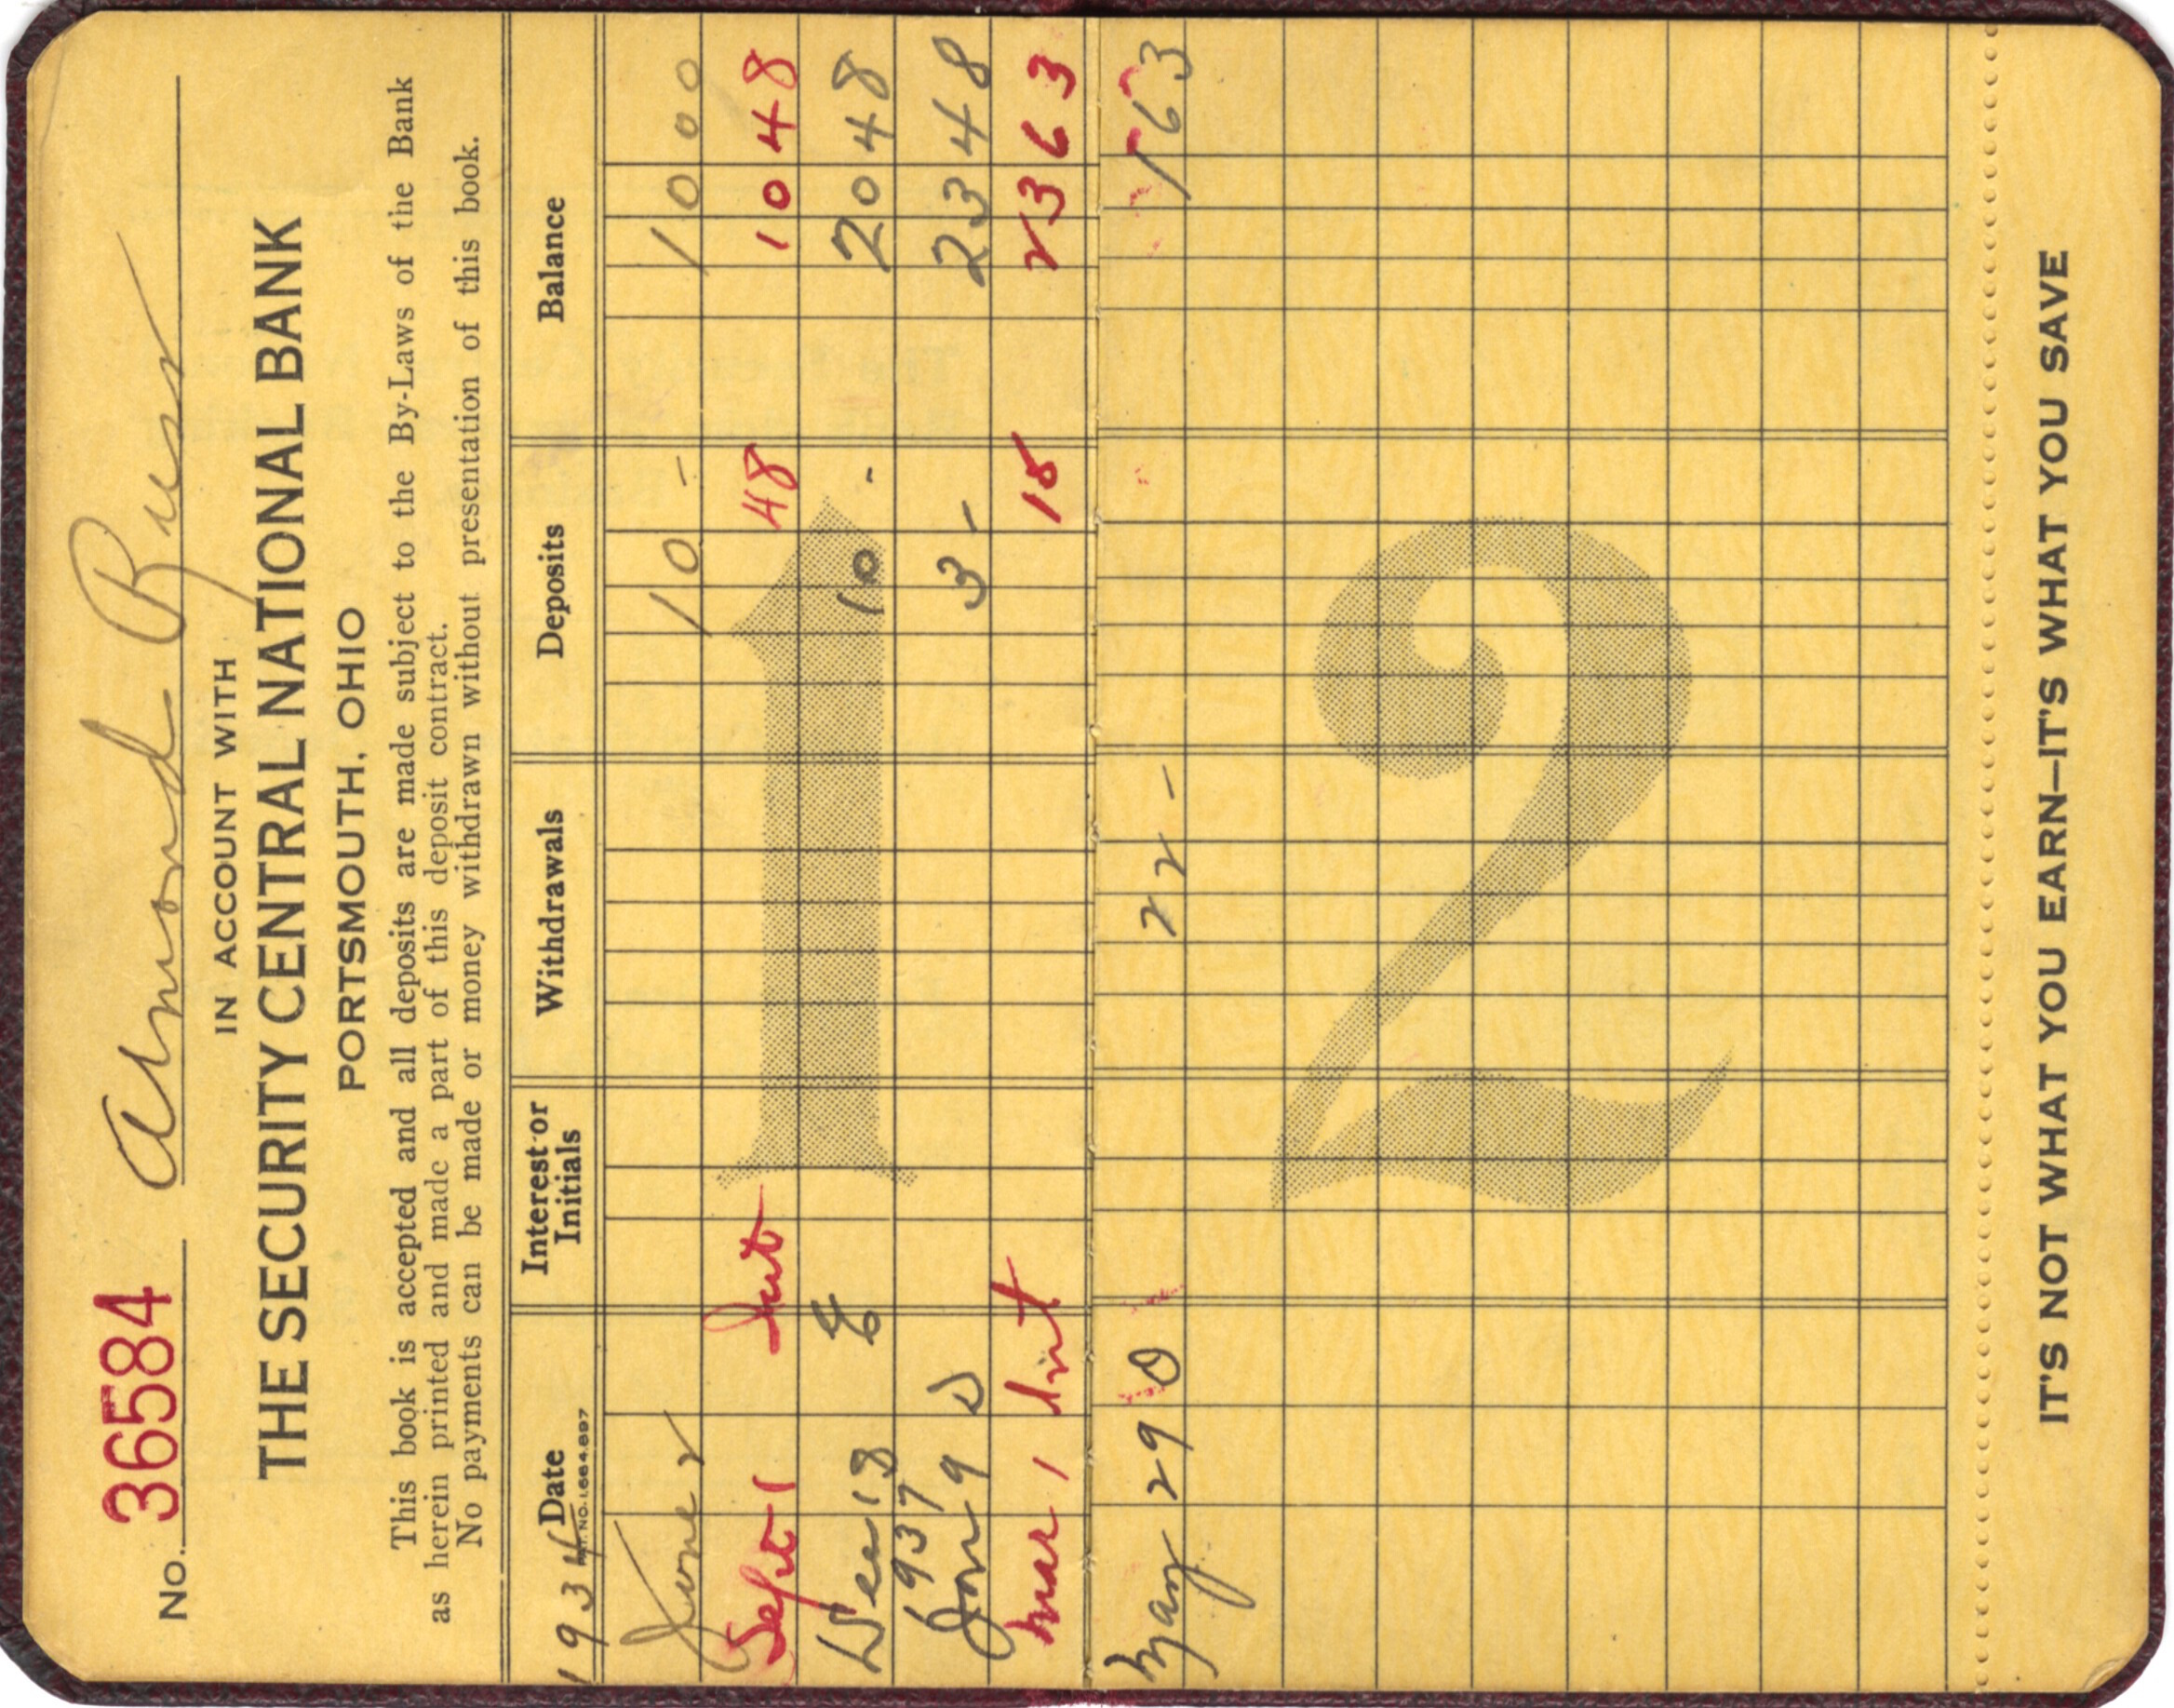 No. 36584 Almond Russ
IN ACCOUNT WITH
THE SECURITY CENTRAL NATIONAL BANK
PORTSMOUTH, OHIO
This book is accepted and all deposits are made subject to the By-Laws of the Bank
as herein printed and made a part of this deposit contract.
No payments can be made or money withdrawn without presentation of this book.
1934 Date Interest or Initials Withdrawals Deposits Balance
PAT. NO. 1,664,697
June 2 10 - 10 00
Sept 1 Int 48 10 48
Dec 18 10 - 20 48
1937
Jan 9 3 - 23 48
Mar 1 Int 15 23 63
1
May 29 22 - 1 63
2
IT'S NOT WHAT YOU EARN—IT'S WHAT YOU SAVE